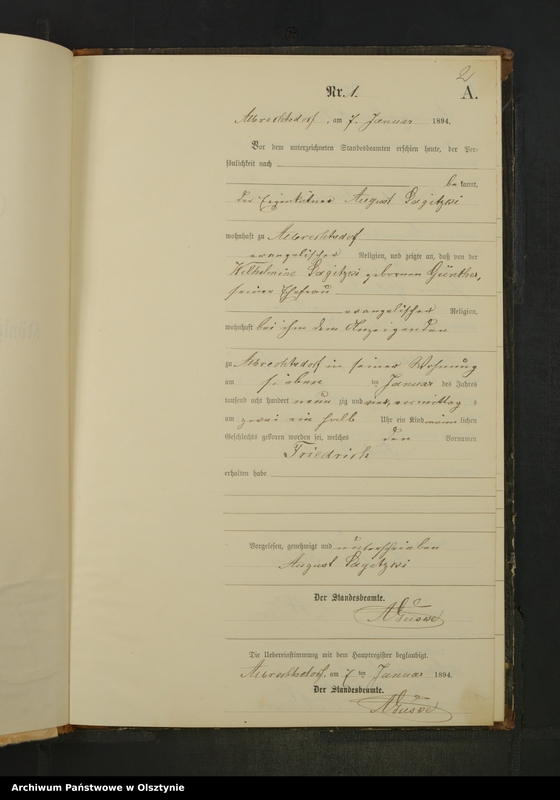 2
Nr. 1.
A.
Albrechtsdorf, am 7. Januar 1894.
Vor dem unterzeichneten Standesbeamten erschien heute, der Per-
sönlichkeit nach
be kannt,
der Eigenkätner August
wohnhaft zu Albrechtsdorf
evangelischer Religion, und zeigte an, daß von der
Wilhelmine geborenen Günther,
seiner Ehefrau
evangelischer Religion,
wohnhaft bei ihm dem Anzeigenden
zu Albrechtsdorf in seiner Wohnung
am sieben ten Januar des Jahres
tausend acht hundert neun zig und vier, vormittag s
um zwei ein halb Uhr ein Kind männ lichen
Geschlechts geboren worden sei, welches den Vornamen
Friedrich
erhalten habe
Vorgelesen, genehmigt und unterschrieben
August
Der Standesbeamte.
Die Uebereinstimmung mit dem Hauptregister beglaubigt.
Albrechtsdorf, am 7 ten Januar 1894.
Der Standesbeamte.
Archiwum Państwowe w Olsztynie